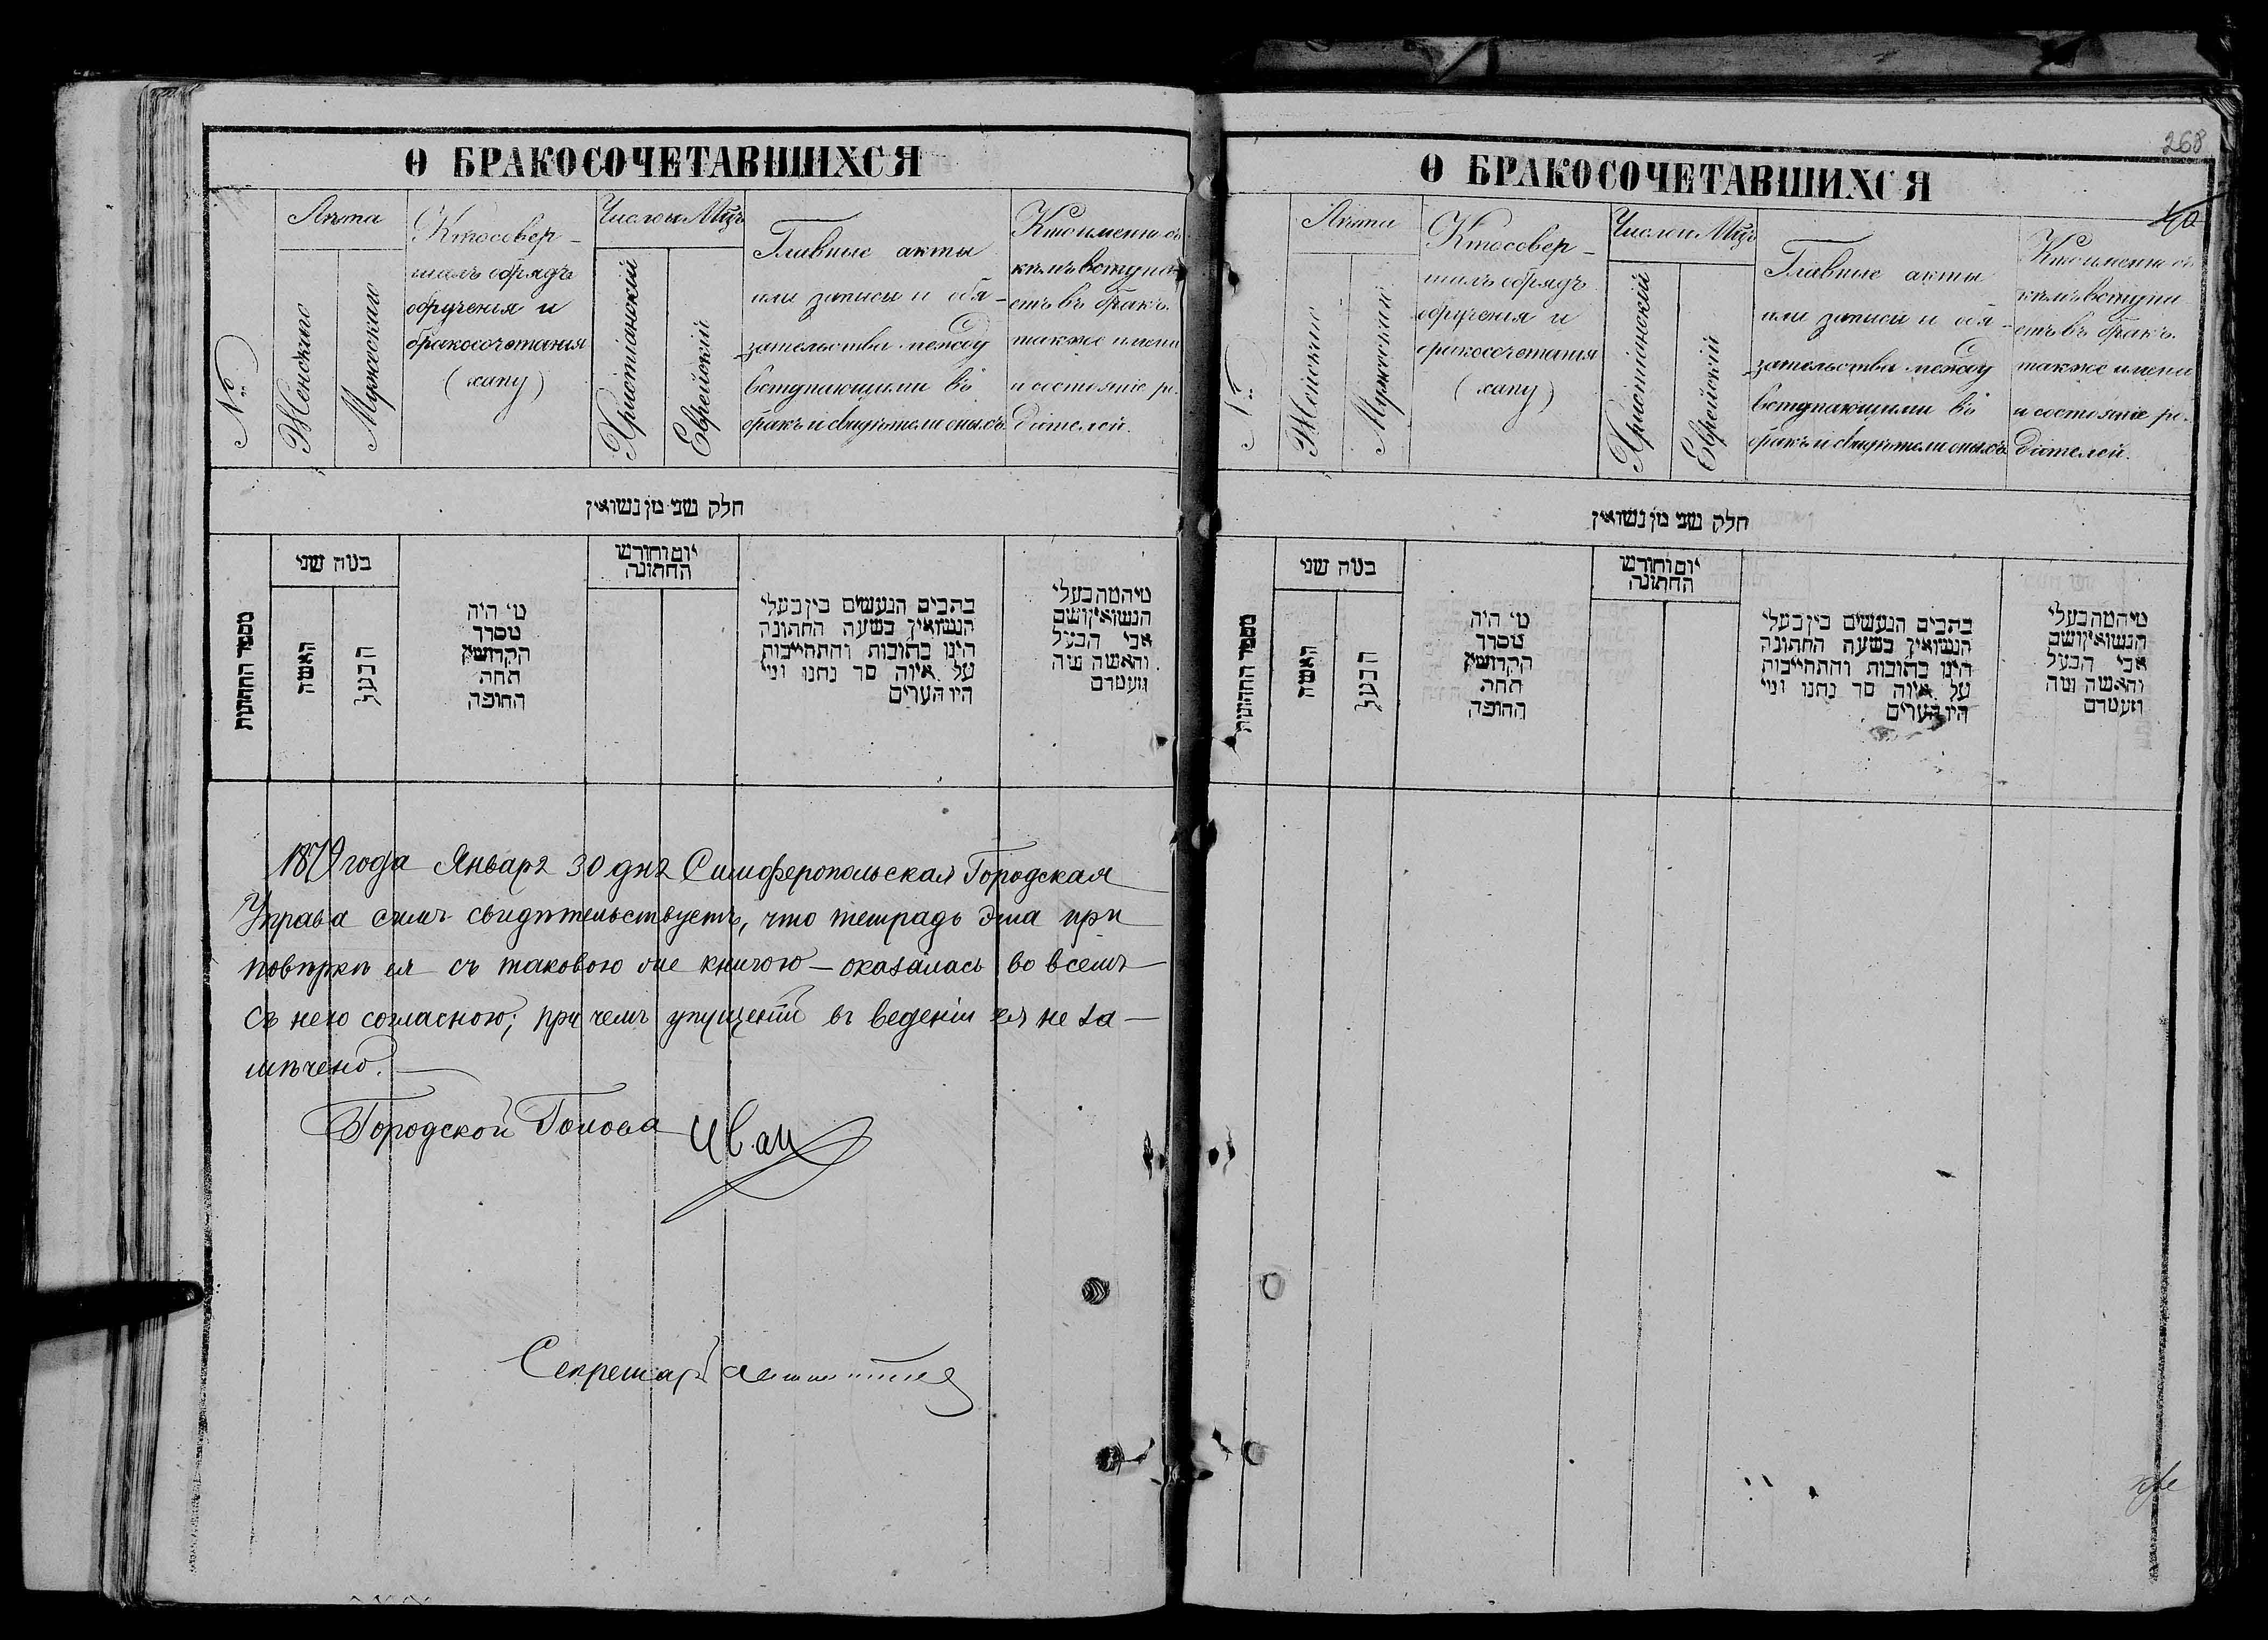 О БРАКОСОЧЕТАВШИХСЯ
№
Лѣта
Женскаго
Мужескаго
Кто совер-
шалъ обрядъ
обрученія и
бракосочетанія
(хапу)
Число и Мцъ
Христіанскій
Еврейскій
Главные акты
или записи и обя-
зательства между
вступающими въ
бракъ и свидѣтели оныхъ
Кто именно съ
кѣмъ вступа-
етъ въ бракъ.
также имена
и состояніе ро-
дителей.
חלק שני מן נשואין
מספר החתונות
במה שני
האשה
הבעל
מי היה
מסדר
הקדושין
תחת
החופה
יום וחודש
החתונה
כתבים הנעשים בין בעלי
הנשואין בשעת החתונה
היינו כתובות והתחייבות
על איזה סך נתנו ומי
היו העדים
מי המה בעלי
הנשואין ושם
אבי הבעל
והאשה ומה
מעמדם
1879 года Января 30 дня Симферопольская Городская
Управа симъ свидѣтельствуетъ, что тетрадь эта при
повѣркѣ ея съ таковою же книгою — оказалась во всемъ
съ нею согласною; при чемъ упущеній въ веденіи ея не за-
мѣчено.
Городской Голова Иван
Секретарь
268
40
О БРАКОСОЧЕТАВШИХСЯ
№
Лѣта
Женскаго
Мужескаго
Кто совер-
шалъ обрядъ
обрученія и
бракосочетанія
(хапу)
Число и Мцъ
Христіанскій
Еврейскій
Главные акты
или записи и обя-
зательства между
вступающими въ
бракъ и свидѣтели оныхъ
Кто именно съ
кѣмъ вступа-
етъ въ бракъ.
также имена
и состояніе ро-
дителей.
חלק שני מן נשואין
מספר החתונות
במה שני
האשה
הבעל
מי היה
מסדר
הקדושין
תחת
החופה
יום וחודש
החתונה
כתבים הנעשים בין בעלי
הנשואין בשעת החתונה
היינו כתובות והתחייבות
על איזה סך נתנו ומי
היו העדים
מי המה בעלי
הנשואין ושם
אבי הבעל
והאשה ומה
מעמדם